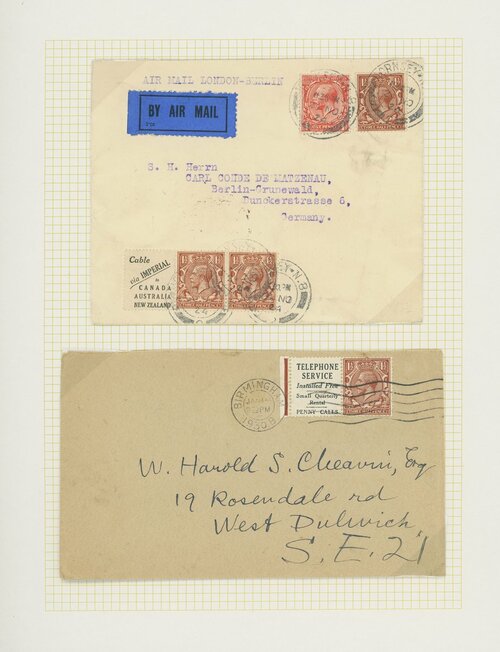 AIR MAIL LONDON-BERLIN
BY AIR MAIL
S. H. Herrn
CARL CONDE DE MATZENAU,
Berlin-Grunewald,
Dunckerstrasse 6,
Germany.
Cable
via IMPERIAL
to
CANADA
AUSTRALIA
NEW ZEALAND
TELEPHONE
SERVICE
Installed Free
Small Quarterly
Rental
PENNY CALLS
BIRMINGHAM
1930
W. Harold S. Cheavin, Esq
19 Rosendale rd
West Dulwich
S.E.21